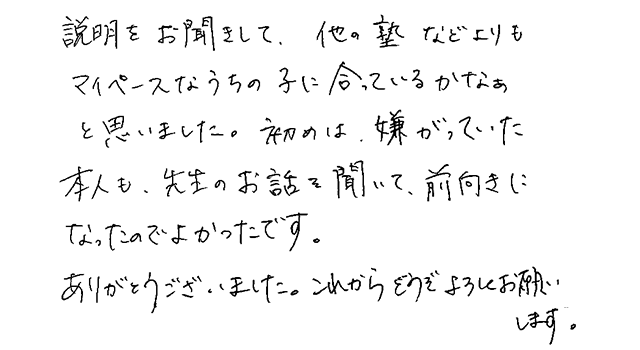 説明をお聞きして、他の塾などよりも
マイペースなうちの子に合っているかなぁ
と思いました。初めは、嫌がっていた
本人も、先生のお話を聞いて、前向きに
なったのでよかったです。
ありがとうございました。これからどうぞよろしくお願い
します。